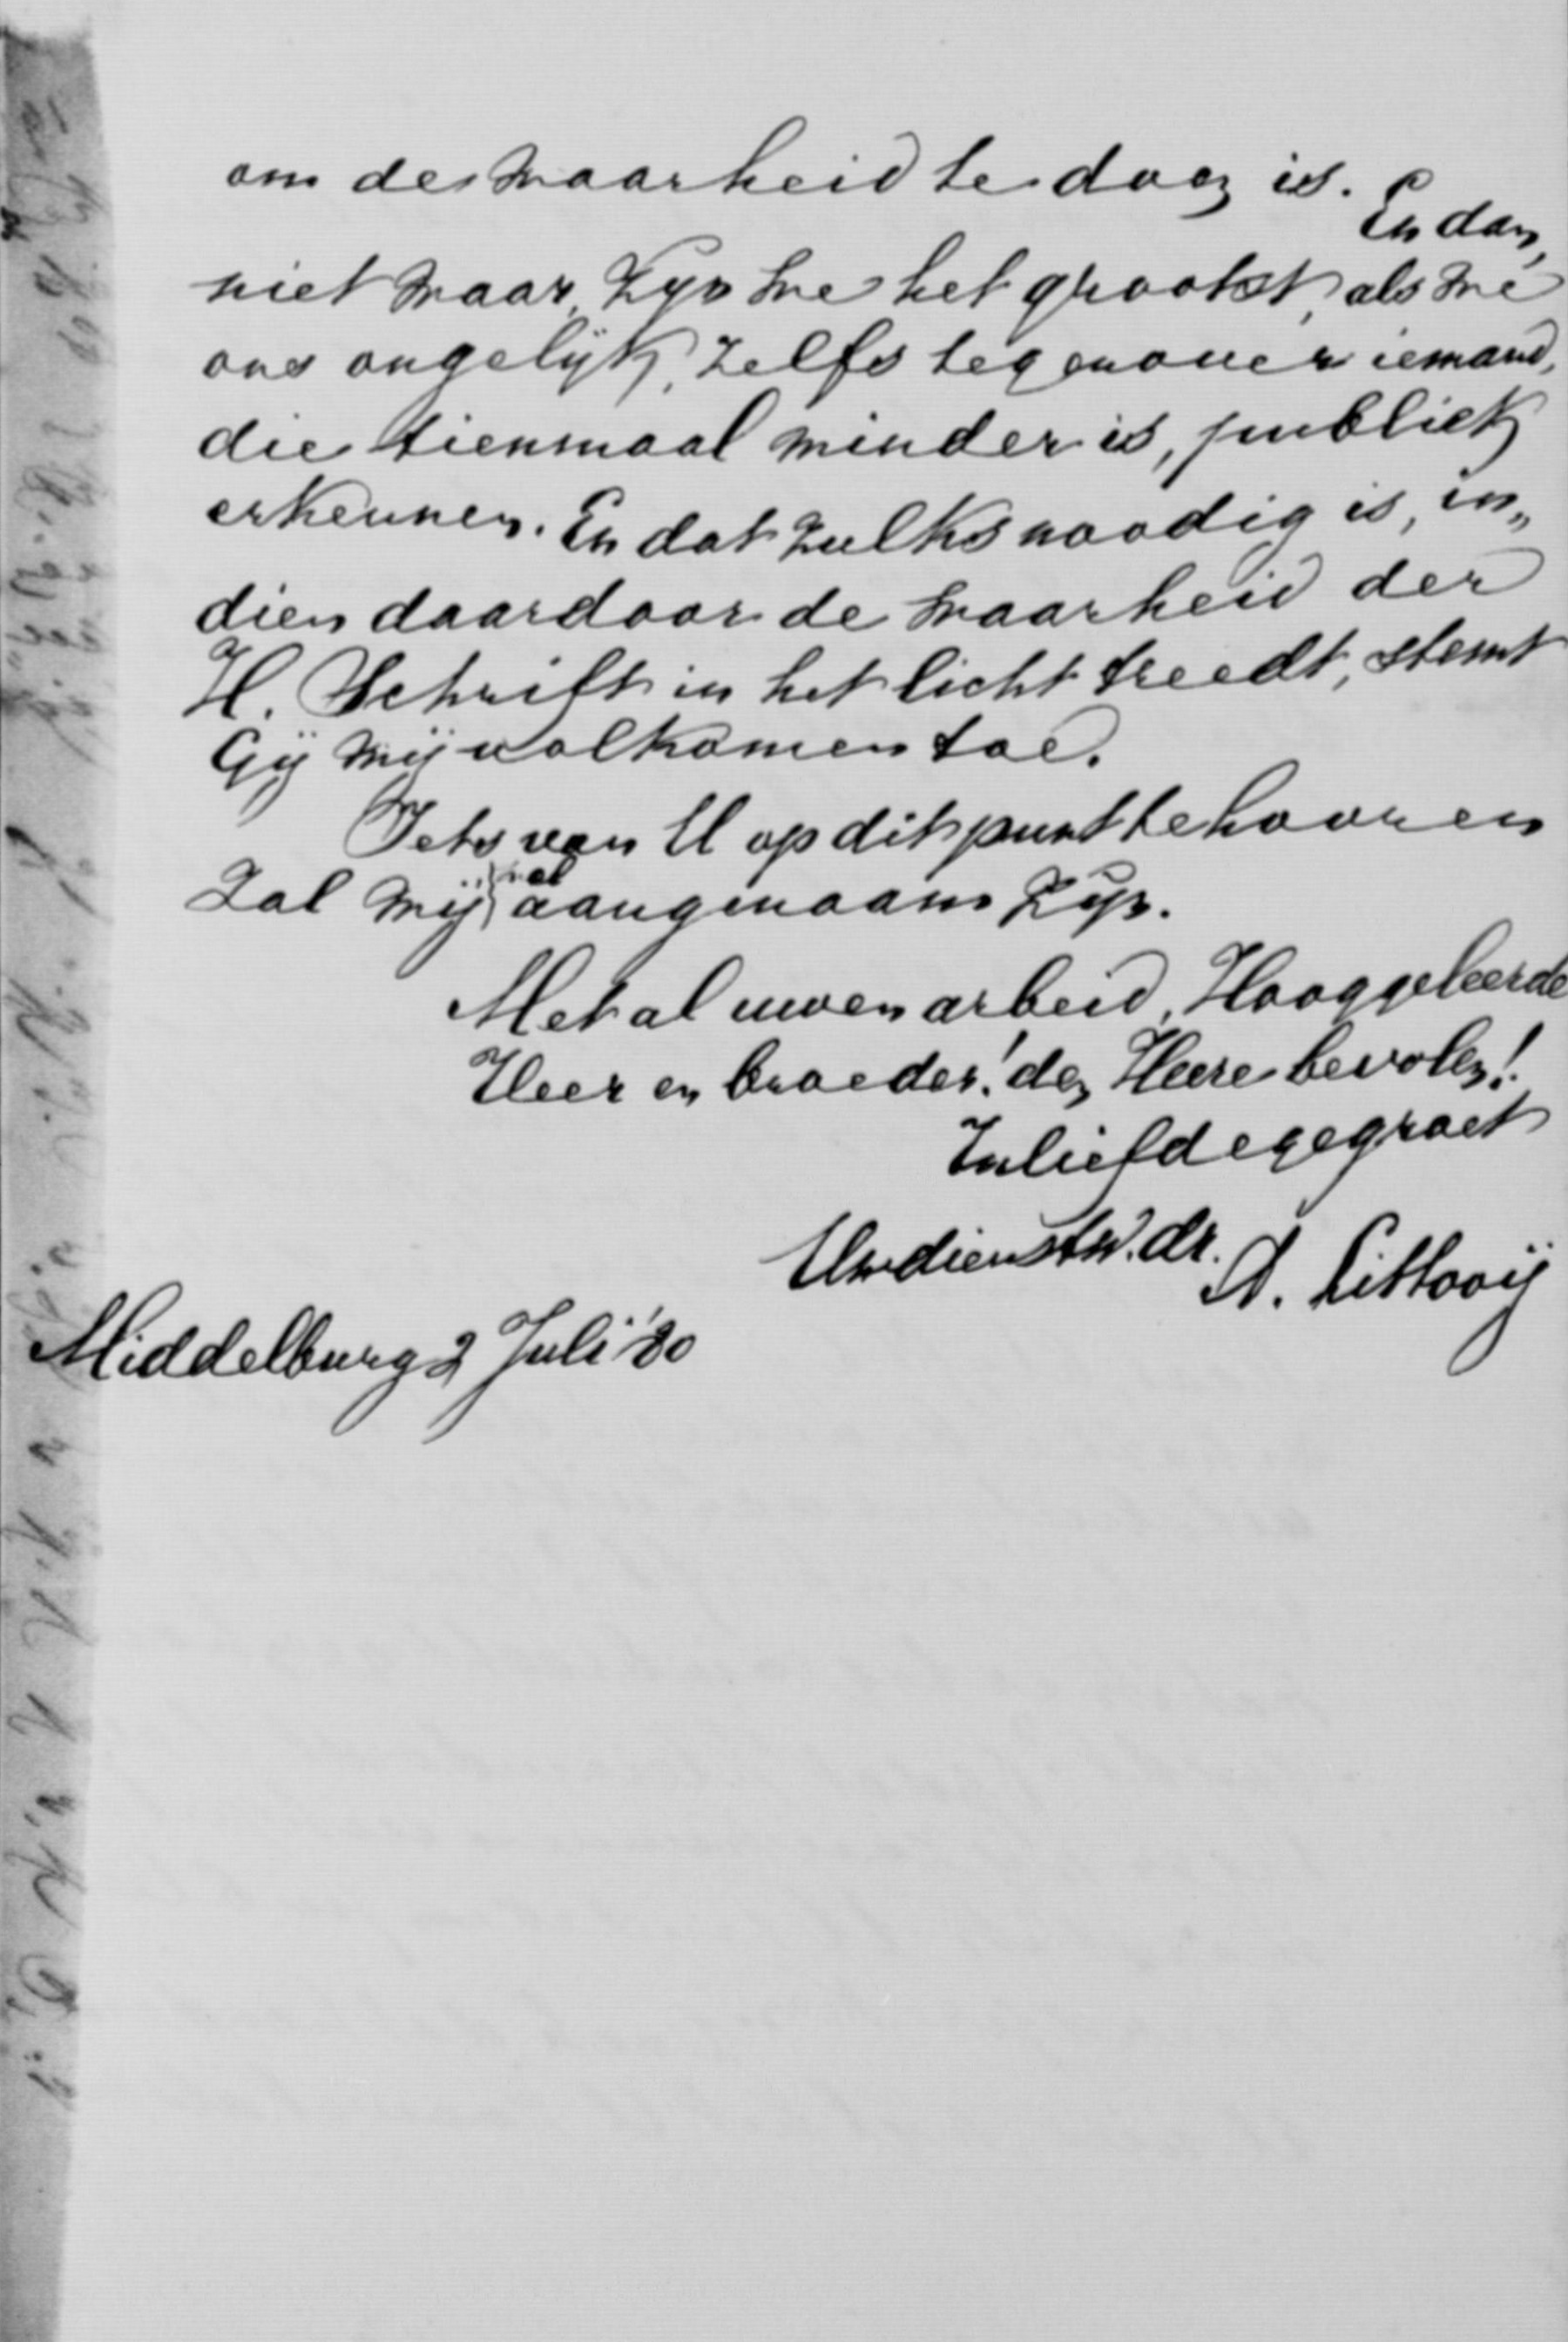 om de waarheid te doen is. En dan,
niet waar, zyn we het grootst, als we
ons ongelijk, zelfs tegenover iemand,
die tienmaal minder is, publiek
erkennen. En dat zulks noodig is, in„
dien daardoor de waarheid der
H. Schrift in het licht treedt, stemt
Gij mij volkomen toe.
Iets van U op dit punt te hooren
zal mij wel aangenaam zijn.
Met al uwen arbeid, Hooggeleerde
Heer en broeder! den Heere bevolen!
In liefde gegroet
Uw dienstw. dr.
A. Littooij
Middelburg 2 Juli '80